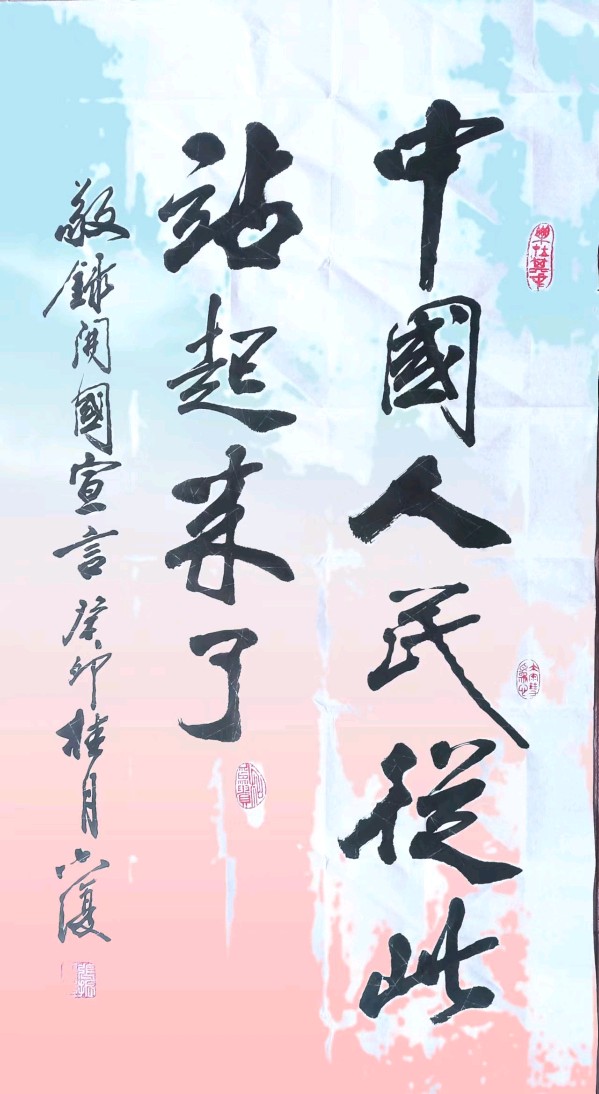 中國人民從此
站起来了
敬録開國宣言 癸卯桂月 六復